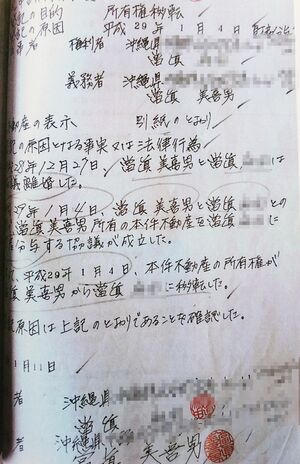 記の目的 所有権移転
記の原因 平成29年1月4日
事者 権利者 沖縄県
當眞
義務者 沖縄県
當眞 美喜男
動産の表示 別紙のとおり
の原因となる事実又は法律行為
28年12月27日、當眞 美喜男と當眞 は
議離婚した。
29年1月4日、當眞 美喜男と當眞 との
當眞 美喜男所有の本件不動産を當眞 に
分与する協議が成立した。
、平成29年1月4日、本件不動産の所有権が
眞 美喜男から當眞 に移転した。
原因は上記のとおりであることを確認した。
1月11日
者 沖縄県
當眞
者 沖縄県
當眞 美喜男